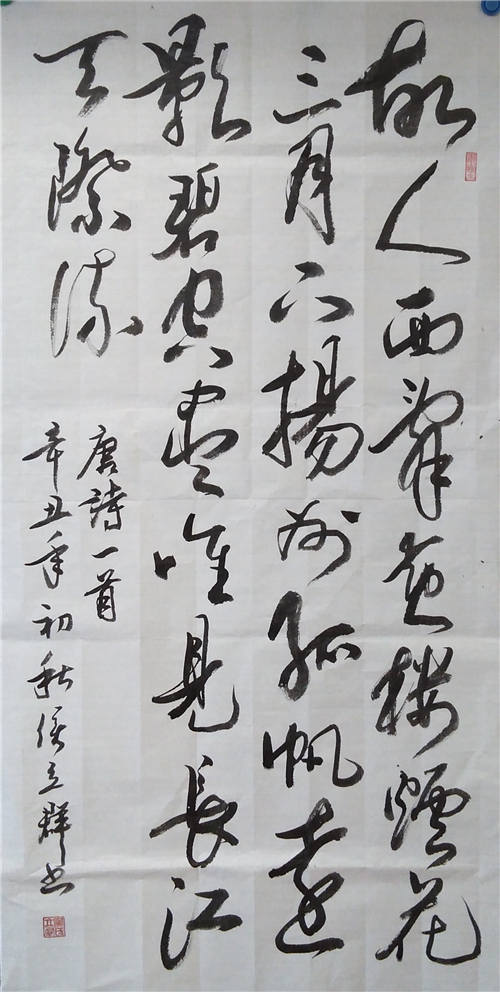 故人西辭黄樓煙花
三月下揚州孤帆遠
影碧空盡唯見長江
天際流
唐詩一首
辛丑年初秋侯立群书